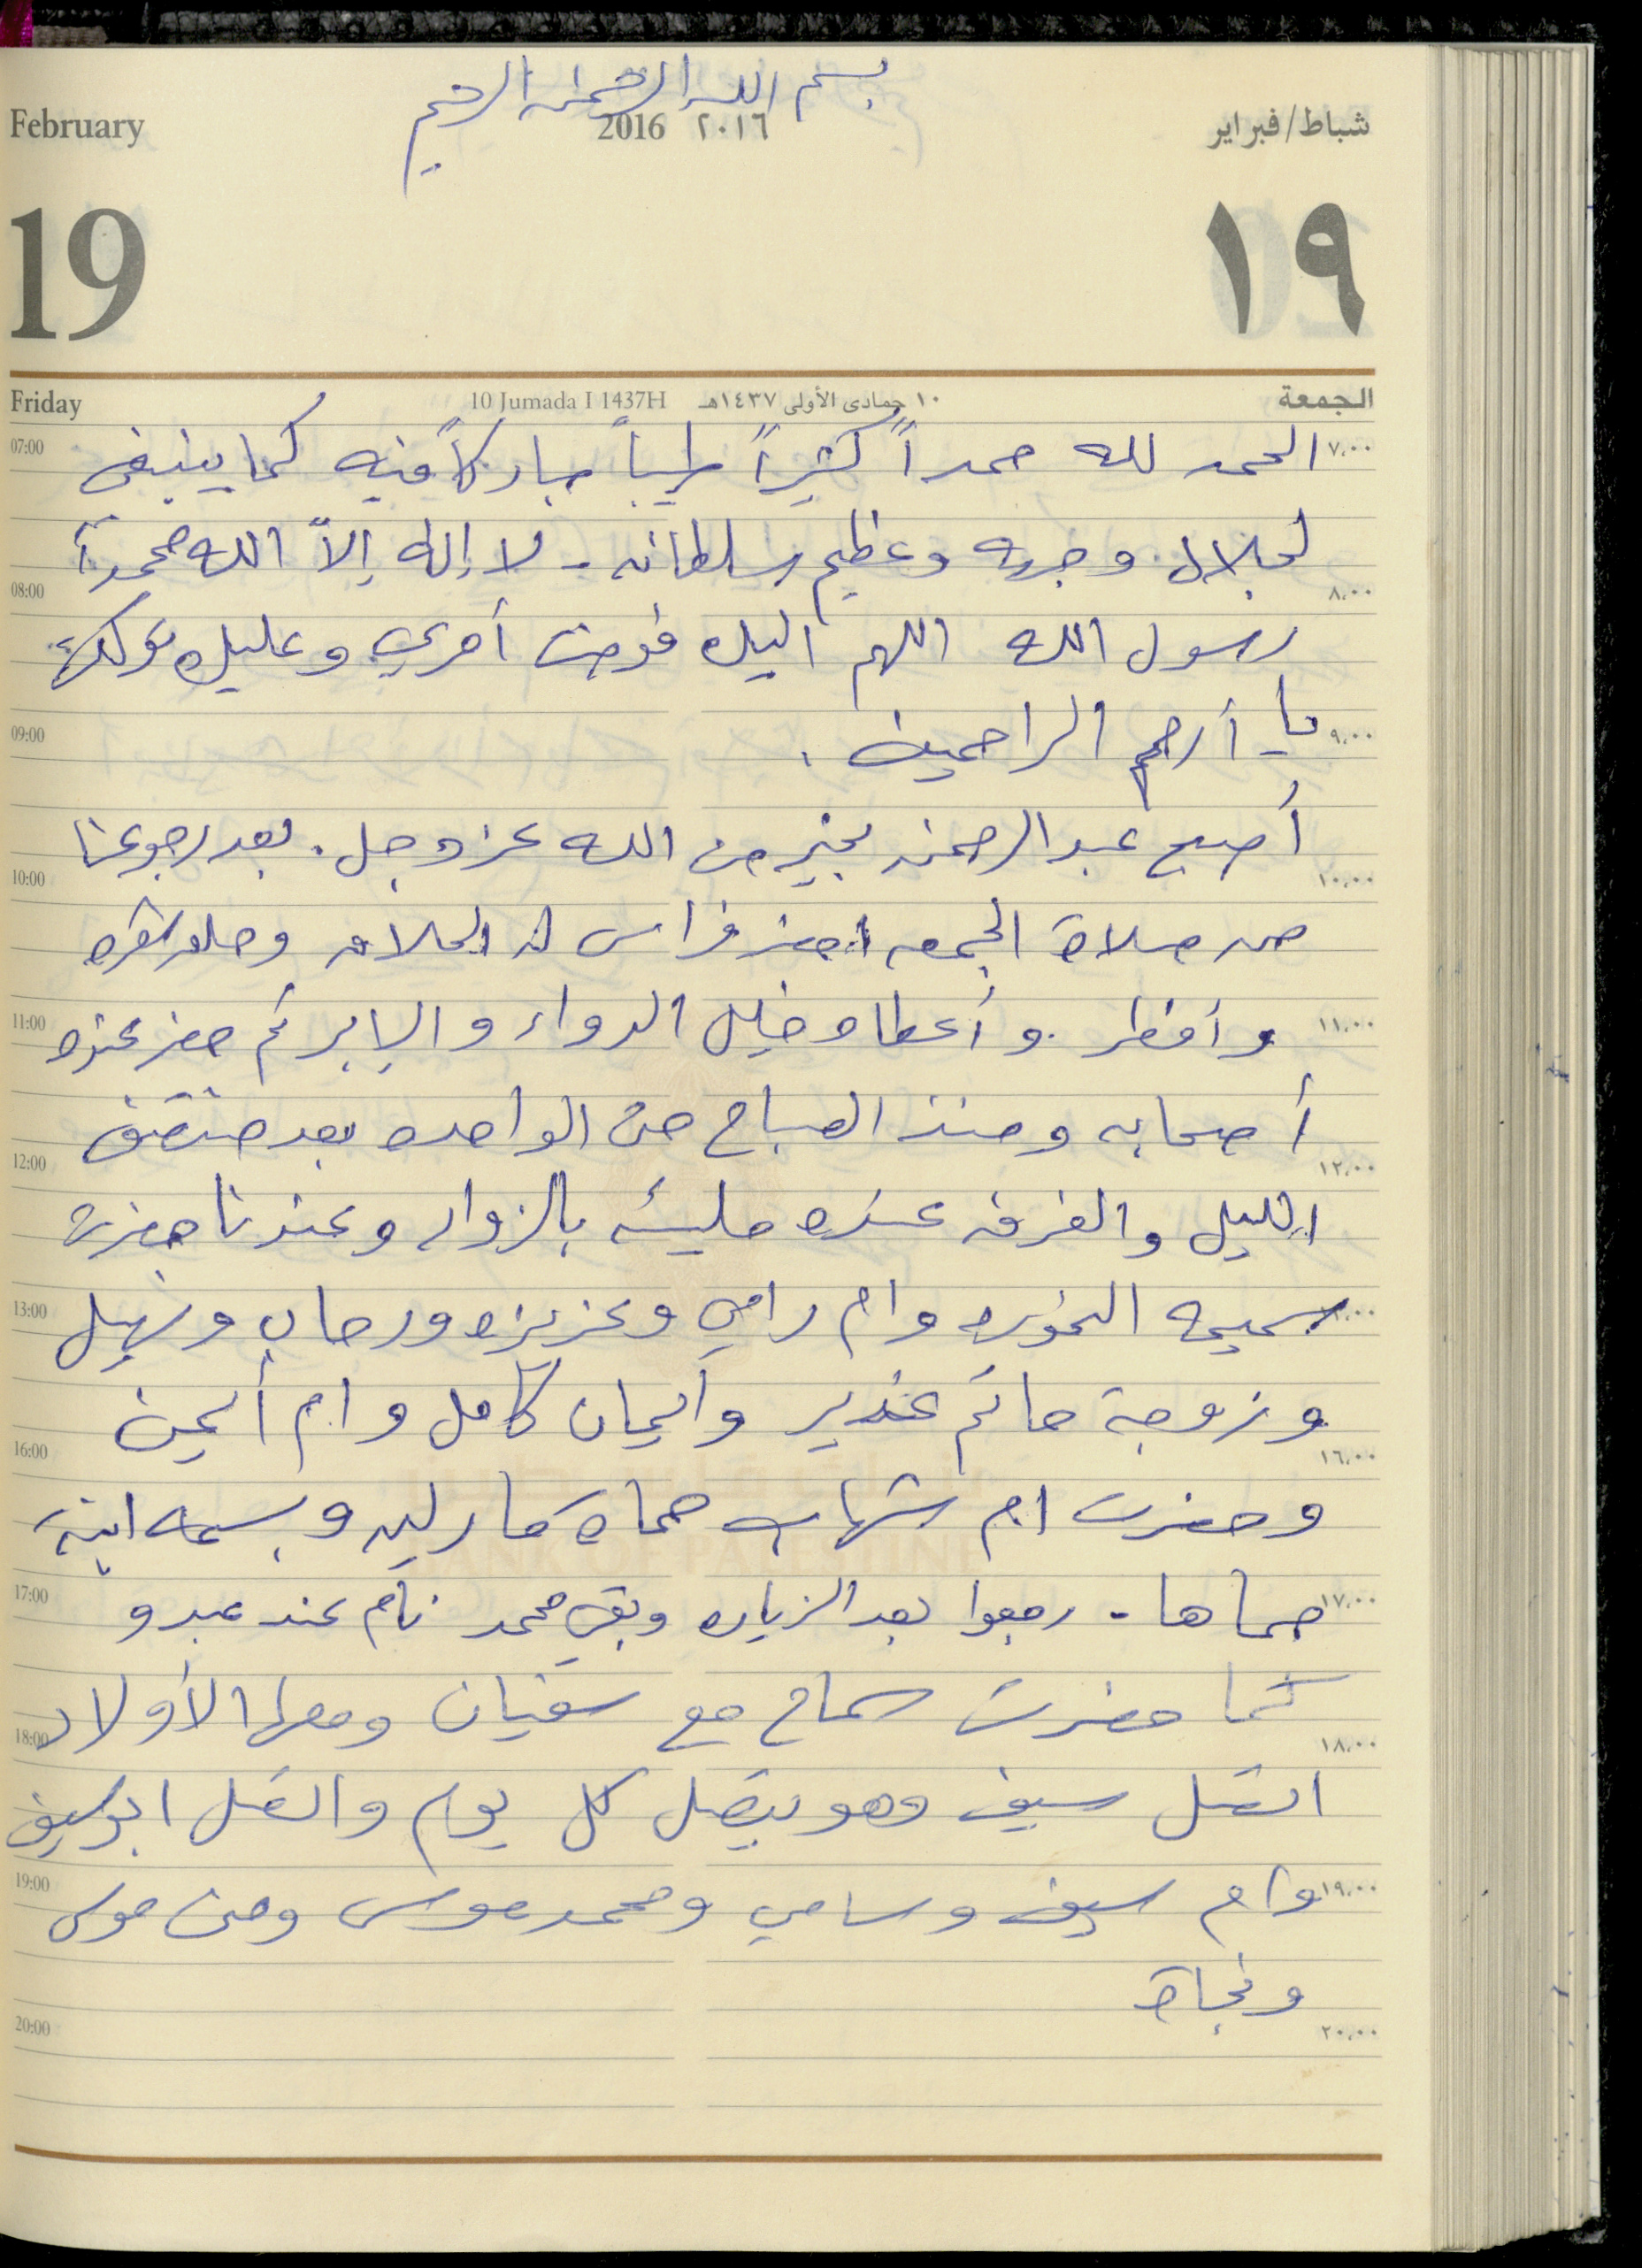 بسم الله الرحمن الرحيم
February 2016 ٢٠١٦ شباط/فبراير
19 ١٩
Friday 10 Jumada I 1437H ١٠ جمادى الأولى ١٤٣٧هـ الجمعة
07:00 الحمد لله حمداً كثيراً طيباً مباركاً فيه كما ينبغي ٧،٠٠
لجلال وجهه وعظيم سلطانه - لا إله إلاّ الله محمداً
08:00 ٨،٠٠
رسول الله اللهم اليك فوضت أمري وعليك توكلت
09:00 يا أرحم الراحمين . ٩،٠٠
أصبح عبد الرحمن بخير من الله عز وجل . بعد رجوعنا
10:00 ١٠،٠٠
من صلاة الجمعه احضر فراس له الحلاق وحلق شعره
11:00 وأفطر . وأعطاه خليل الدواء والإبر ثم حضر عنده ١١،٠٠
أصحابه ومنذ الصباح حتى الواحده بعد منتصف
12:00 ١٢،٠٠
الليل والغرفه عنده مليئه بالزوار وعندنا حضرت
13:00 سميحه وام رامي وعزيزه ورحاب ونهيل
وزوجة حاتم غدير وايمان كامل وام أيمن
16:00 ١٦،٠٠
وحضرت ام شهاب حماة مارلين وبسمه ابنة
BANK OF PALESTINE
17:00 حماها - رجعوا بعد الزياره وبقي محمد نام عند عبد و ١٧،٠٠
كما حضرت سماح مع سفيان ومعها الأولاد
18:00 ١٨،٠٠
اتصل سيف وهو بيتصل كل يوم واتصل ابو سيف
19:00 وام سيف وسامي ومحمد موسى ومنى موسى ١٩،٠٠
ونجاة
20:00 ٢٠،٠٠